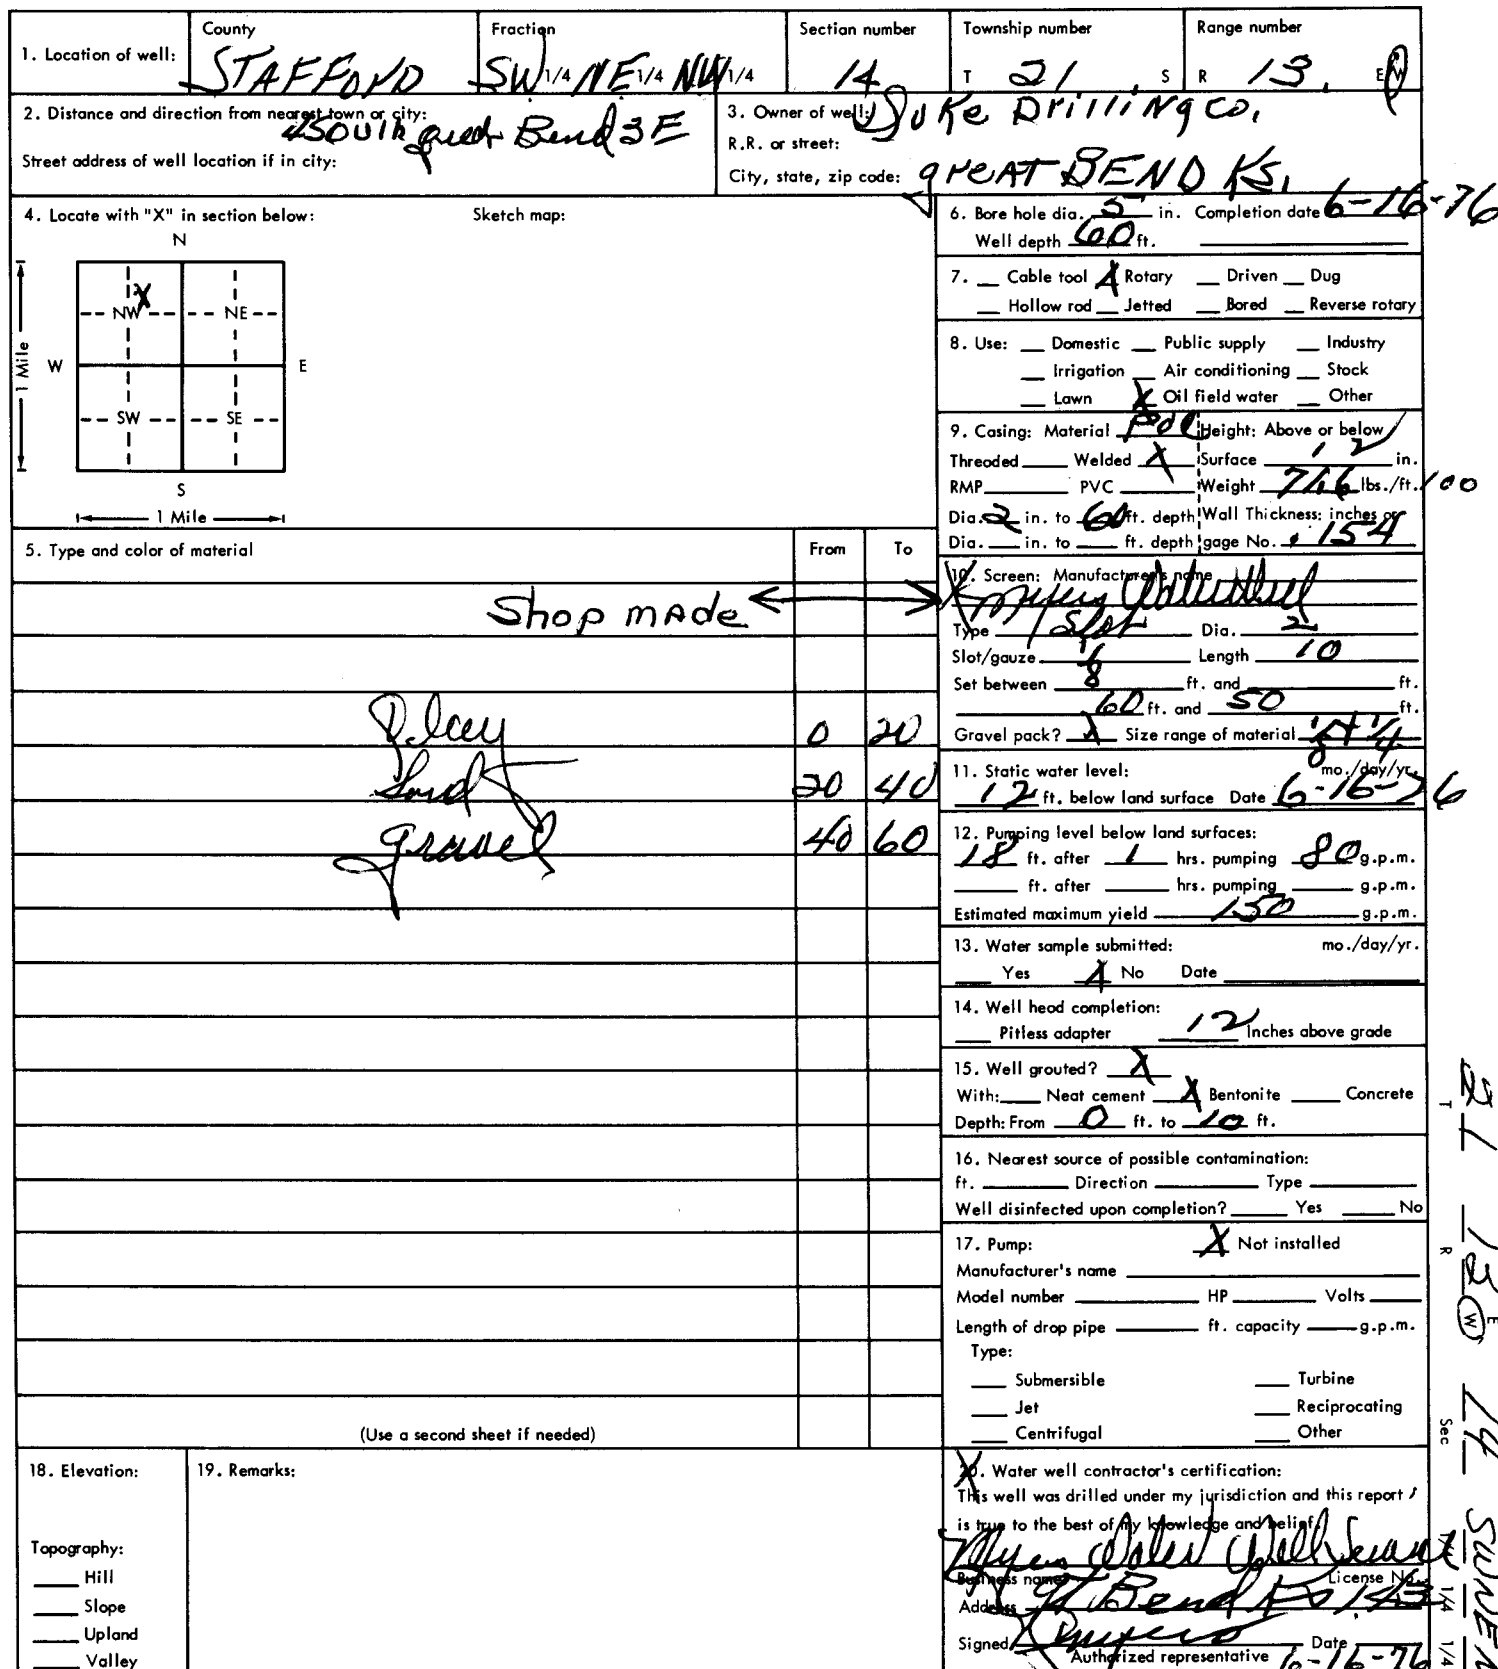 County Fraction Section number Township number Range number
1. Location of well: STAFFORD SW 1/4 NE 1/4 NW 1/4 14 T 21 S R 13 E W
2. Distance and direction from nearest town or city: South great Bend 3E
Street address of well location if in city:
3. Owner of well: Duke Drilling co.
R.R. or street:
City, state, zip code: great BEND KS.
4. Locate with "X" in section below: Sketch map:
N
X
NW NE
1 Mile W E
SW SE
S
1 Mile
5. Type and color of material From To
Shop made
Clay 0 20
Sand 20 40
gravel 40 60
(Use a second sheet if needed)
6. Bore hole dia. 5 in. Completion date 6-16-76
Well depth 60 ft.
7. Cable tool X Rotary Driven Dug
Hollow rod Jetted Bored Reverse rotary
8. Use: Domestic Public supply Industry
Irrigation Air conditioning Stock
Lawn X Oil field water Other
9. Casing: Material Height: Above or below
Threaded Welded X Surface 12 in.
RMP PVC Weight lbs./ft.
Dia. 2 in. to 60 ft. depth Wall Thickness: inches or
Dia. in. to ft. depth gage No. .154
10. Screen: Manufacturer's name
Myers
Type Slot Dia. 2
Slot/gauze Length 10
Set between ft. and ft.
60 ft. and 50 ft.
Gravel pack? X Size range of material
11. Static water level: mo./day/yr.
12 ft. below land surface Date 6-16-76
12. Pumping level below land surfaces:
18 ft. after 1 hrs. pumping 80 g.p.m.
ft. after hrs. pumping g.p.m.
Estimated maximum yield 150 g.p.m.
13. Water sample submitted: mo./day/yr.
Yes X No Date
14. Well head completion:
Pitless adapter 12 Inches above grade
15. Well grouted? X
With: Neat cement X Bentonite Concrete
Depth: From 0 ft. to 10 ft.
16. Nearest source of possible contamination:
ft. Direction Type
Well disinfected upon completion? Yes No
17. Pump: X Not installed
Manufacturer's name
Model number HP Volts
Length of drop pipe ft. capacity g.p.m.
Type:
Submersible Turbine
Jet Reciprocating
Centrifugal Other
18. Elevation:
Topography:
Hill
Slope
Upland
Valley
19. Remarks:
20. Water well contractor's certification:
This well was drilled under my jurisdiction and this report
is true to the best of my knowledge and belief
Myers Water Well Service
Business name License No.
Address Gt Bend Ks 143
Signed Myers Date 6-16-76
Authorized representative
T 21 R 13 E W Sec 14 1/4 1/4 SW NE